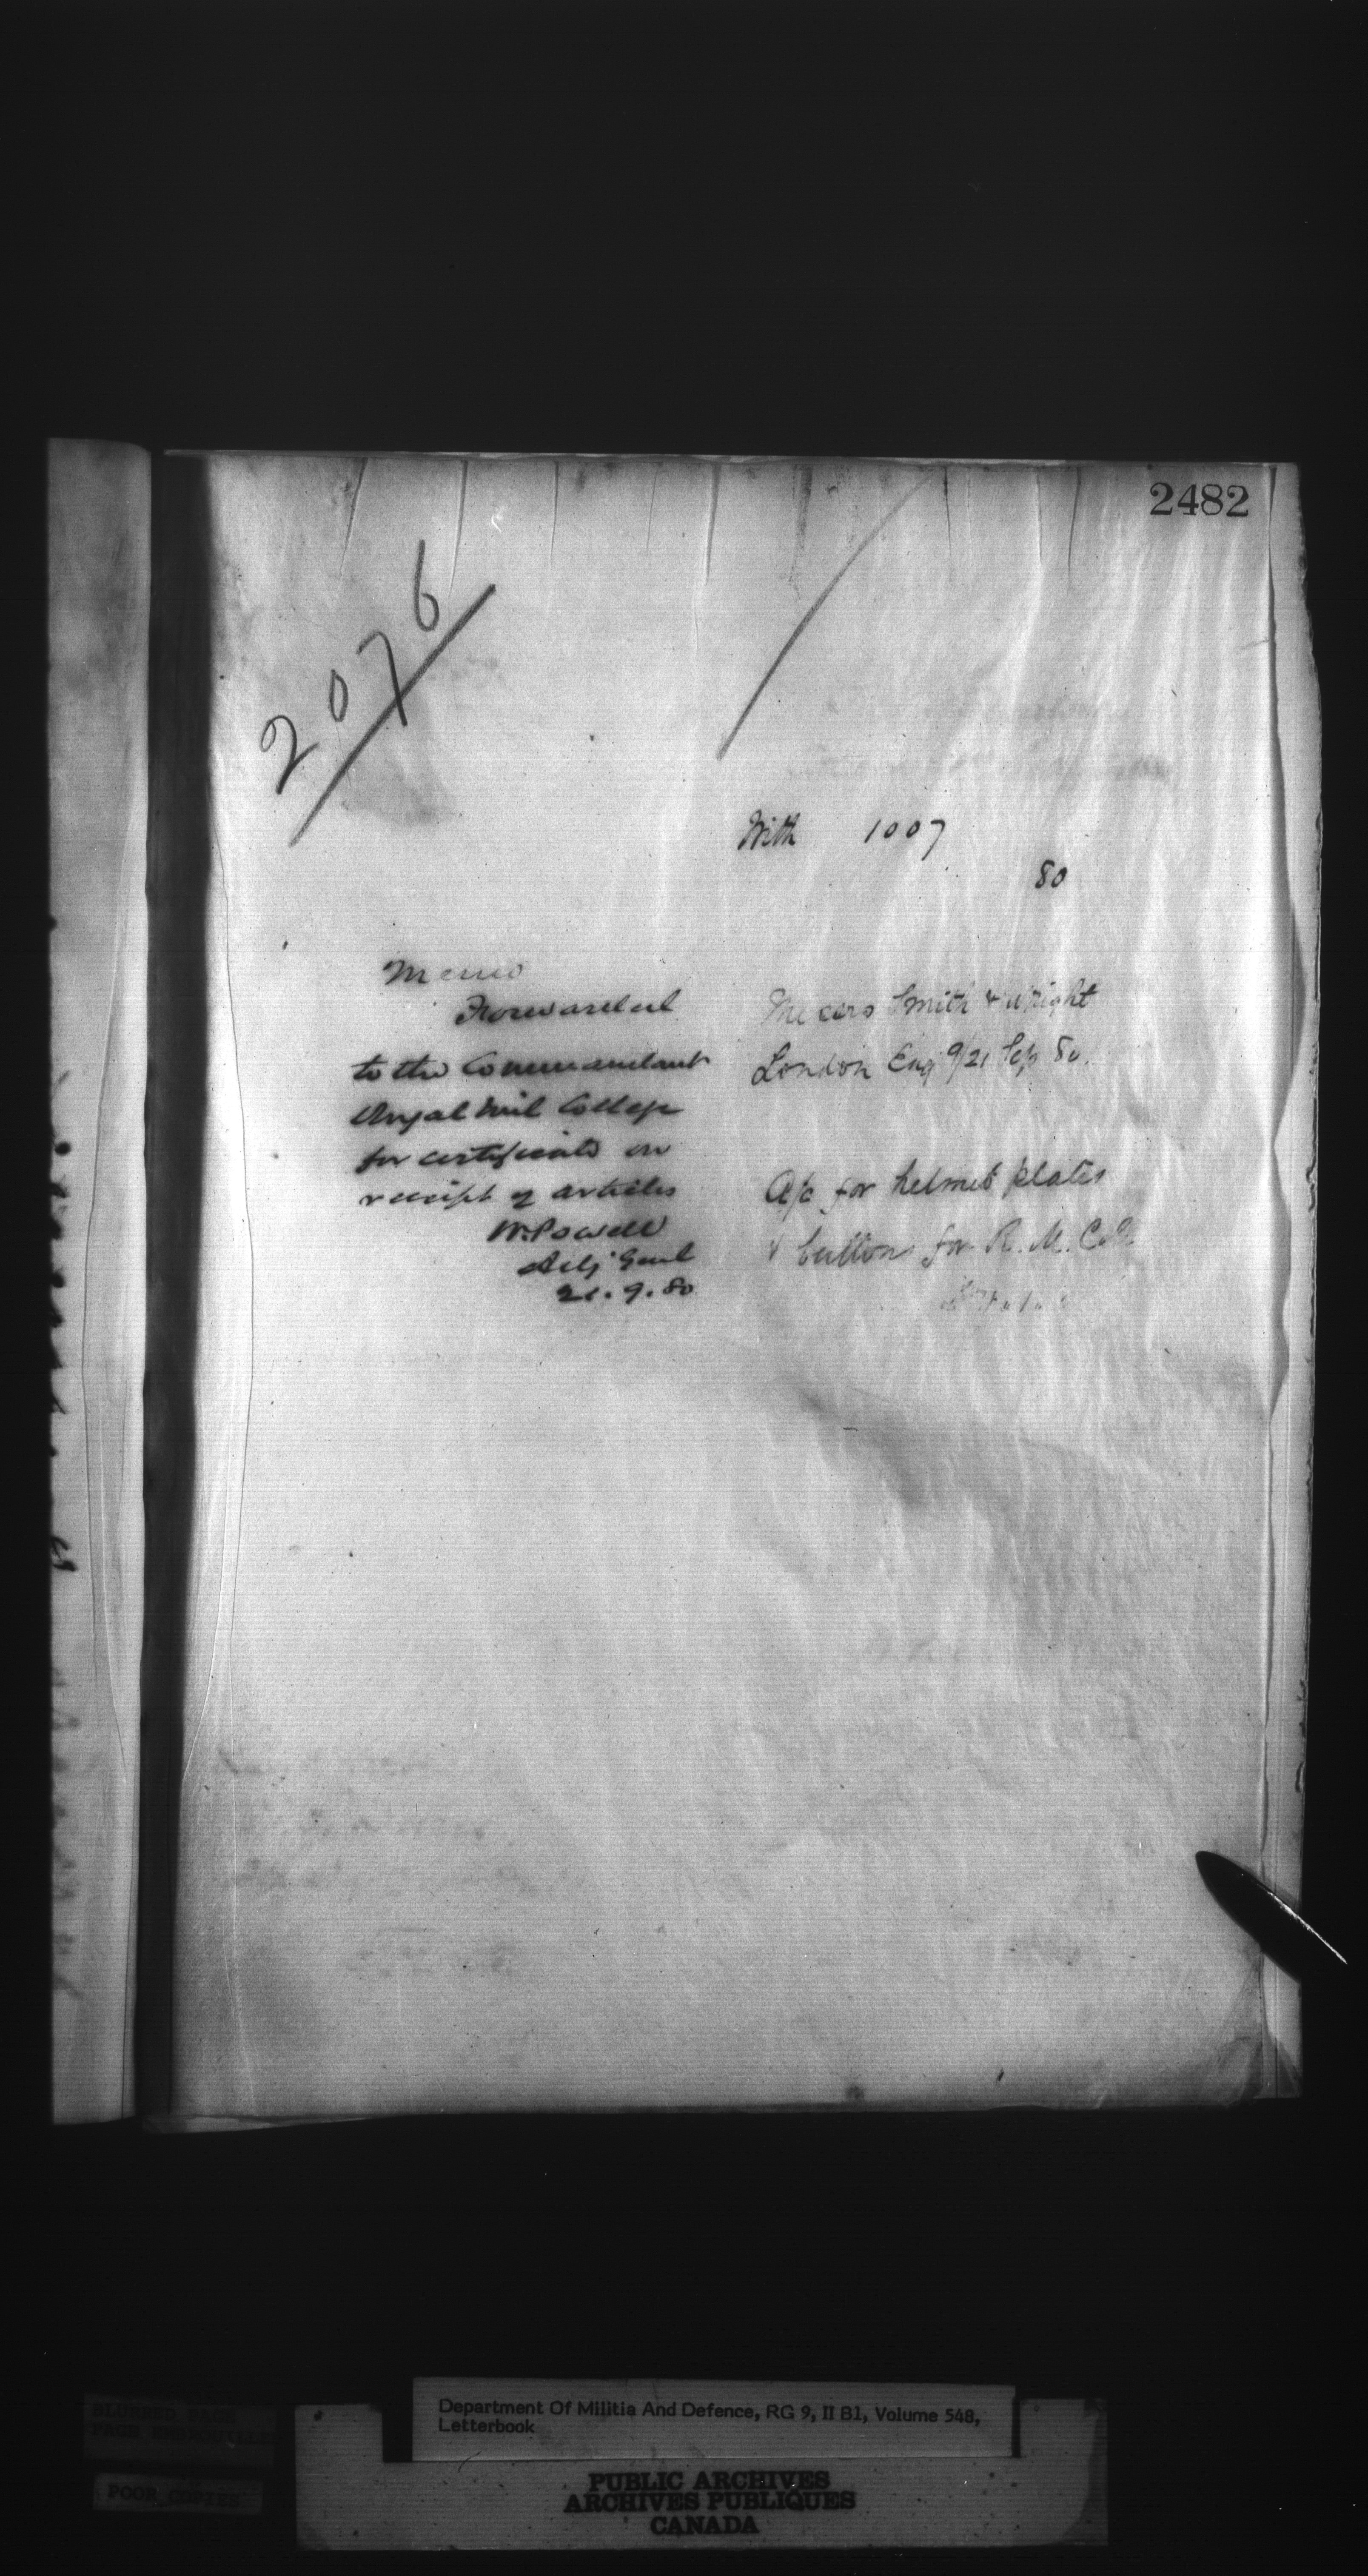 2482
2076
With 1007
80
Memo
Forwarded
to the Commandant
Royal Mil College
for certificate on
receipt of articles
W. Powell
Adj Genl
21.9.80
Messrs Smith & Wright
London Eng 9/21 Sep 80.
A/c for helmet plates
& buttons for R. M. Coll.
Department Of Militia And Defence, RG 9, II B1, Volume 548,
Letterbook
BLURRED PAGE
PAGE EMBROUILLEE
POOR COPIES
PUBLIC ARCHIVES
ARCHIVES PUBLIQUES
CANADA